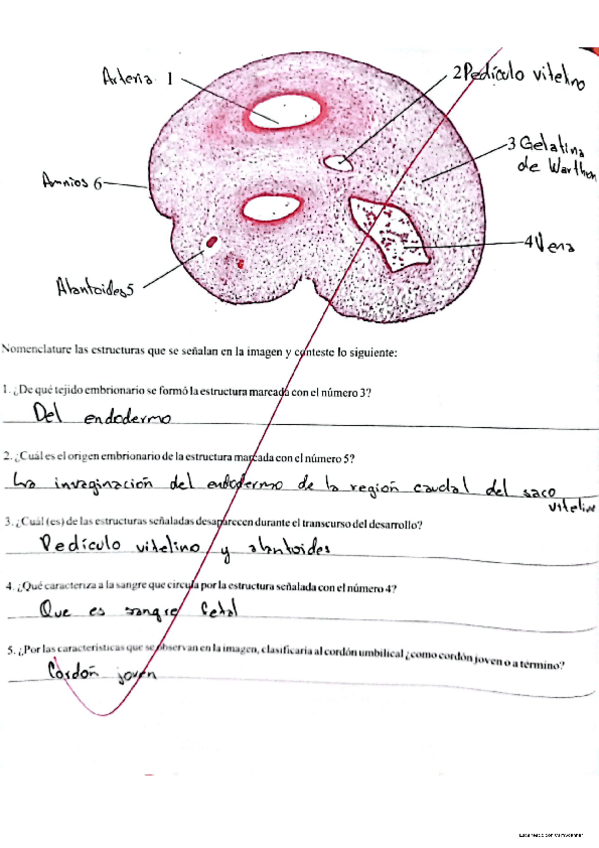 Arteria 1
2 Pedículo vitelino
3 Gelatina
de Warthon
Amnios 6
4 Vena
Alantoides 5
Nomenclature las estructuras que se señalan en la imagen y conteste lo siguiente:
1. ¿De qué tejido embrionario se formó la estructura marcada con el número 3?
Del endodermo
2. ¿Cuál es el origen embrionario de la estructura marcada con el número 5?
La invaginación del endodermo de la región caudal del saco
vitelino
3. ¿Cuál (es) de las estructuras señaladas desaparecen durante el transcurso del desarrollo?
Pedículo vitelino y alantoides
4. ¿Qué caracteriza a la sangre que circula por la estructura señalada con el número 4?
Que es sangre fetal
5. ¿Por las características que se observan en la imagen, clasificaría al cordón umbilical ¿como cordón joven o a término?
Cordón joven